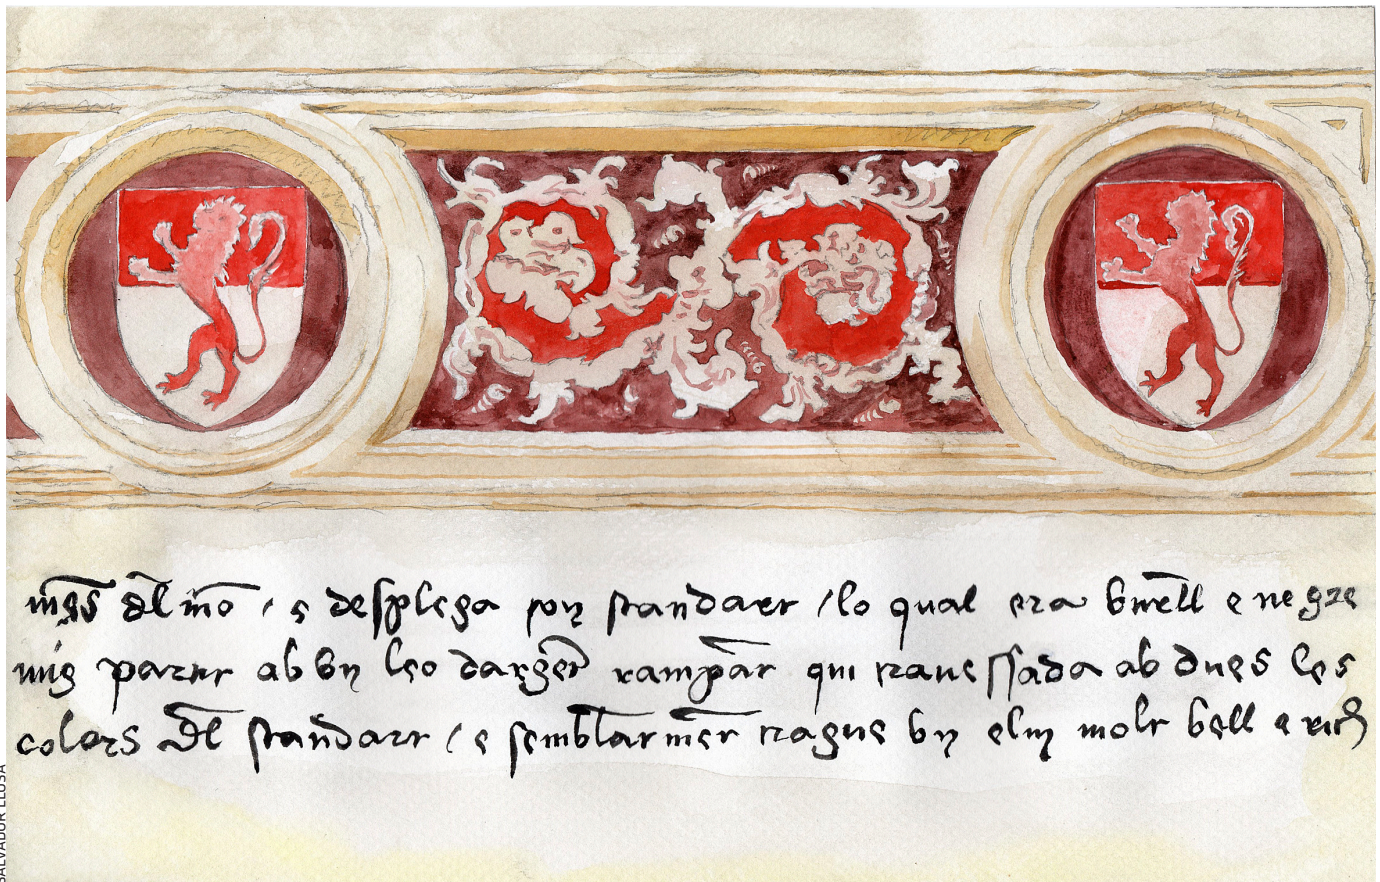 mes dl mo / e desplega son standart / lo qual era bmell e negre
mig partit ab bn leo dargent rampat qui trauessada ab dues les
colors dl standart / e semblatmet tragne bn elm molt bell e rich
SALVADOR LLUSÀ